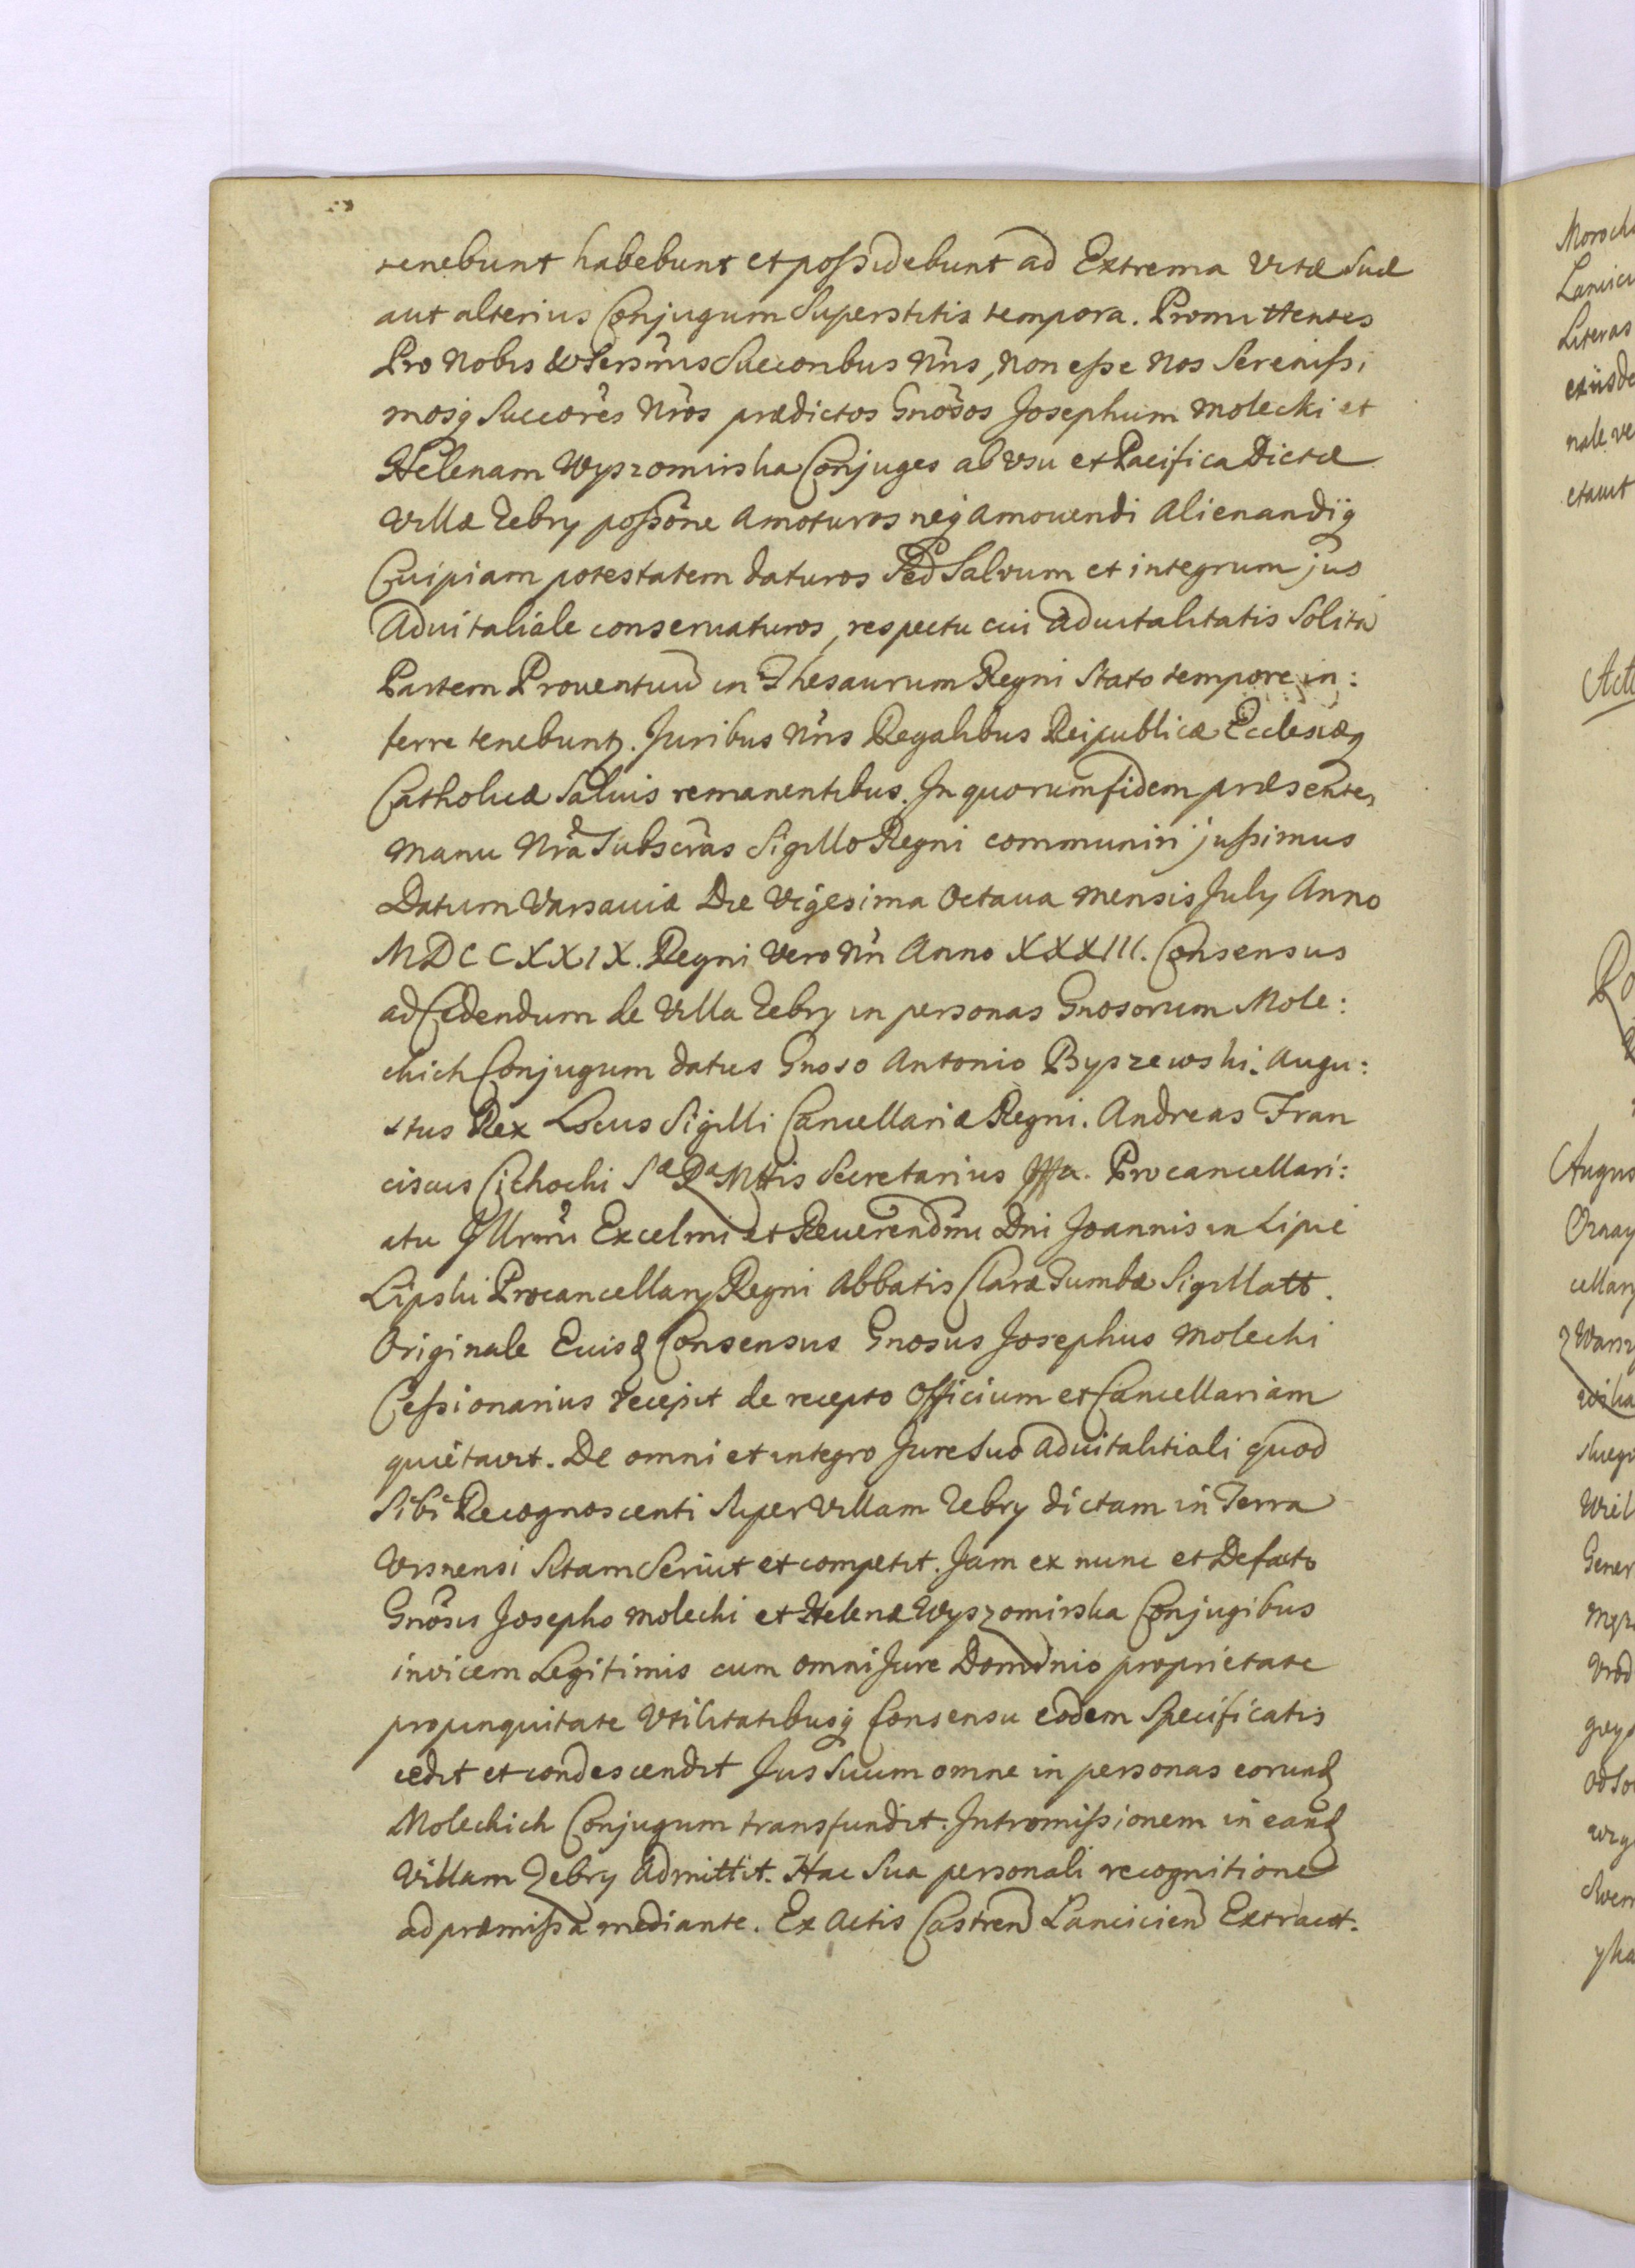 tenebunt habebunt et possidebunt ad Extrema Vitæ Suæ
aut alterius Conjugum Superstitis tempora. Promittentes
Pro Nobis & Sersmis Succoribus Nris, Non esse Nos Serenissi
mosq Succores Nros prædictos Gnosos Josephum Molecki et
Helenam Wyszomirska Conjuges ab Vsu et Pacifica Dictæ
Villæ Zebry possone Amoturos neq amovendi Alienandiq
Cuipiam potestatem daturos Sed Salvum et integrum jus
Advitaliale conservaturos, respectu cui advitalitatis Solitā
Partem Proventuū in Thesaurum Regni Stato tempore in:
ferre tenebuntr. Juribus Nris Regalibus Reipublicæ Ecclesiæq
Catholicæ Salvis remanentibus. In quorum fidem præsentes
Manu Nra Subscras Sigillo Regni communiri jussimus
Datum Varsaviæ Die Vigesima Octava Mensis July Anno
MDCCXXIX. Regni Vero Nri Anno XXXIII. Consensus
ad Cedendum de Villa Zebry in personas Gnosorum Mole:
ckich Conjugum datus Gnoso Antonio Byszewski. Augu:
stus Rex Locus Sigilli Cancellariæ Regni. Andreas Fran
ciscus Cichocki Sæ Ræ Mttis Secretarius Procancellari:
atu Illrmi Excelmi et Reverendmi Dni Joannis in Lipie
Lipski Procancellary Regni Abbatis Claræ Tumbæ Sigillatt.
Originale Euisd Consensus Gnosus Josephus Molecki
Cessionarius recepit de recepto Officium et Cancellariam
quietavit. De omni et integro Jure Suo advitalitiali quod
Sibi Recognoscenti Super Villam Zebry dictam in Terra
Visnensi Sitam Servit et competit. Jam ex nunc et Defacto
Gnosis Josepho Molecki et Helenæ Wyszomirska Conjugibus
invicem Legitimis cum omni Jure Dominio proprietate
propinquitate Vtilitatibusq Consensu eodem Specificatis
cedit et condescendit Jus Suum omne in personas eorund
Moleckich Conjugum transfundit. Intromissionem in eand
Villam Zebry Admittit. Hac Sua personali recognitione
ad præmissa mediante. Ex Actis Castren Lancicien Extract.